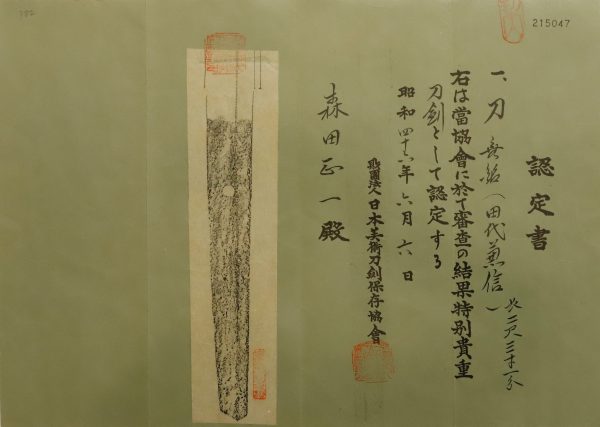 215047
認定書
一、刀 無銘(田代兼信)長二尺三寸一分
右は當協會に於て審査の結果特別貴重
刀剣として認定する
昭和四十六年六月六日
財團法人日本美術刀剣保存協會
森田正一殿